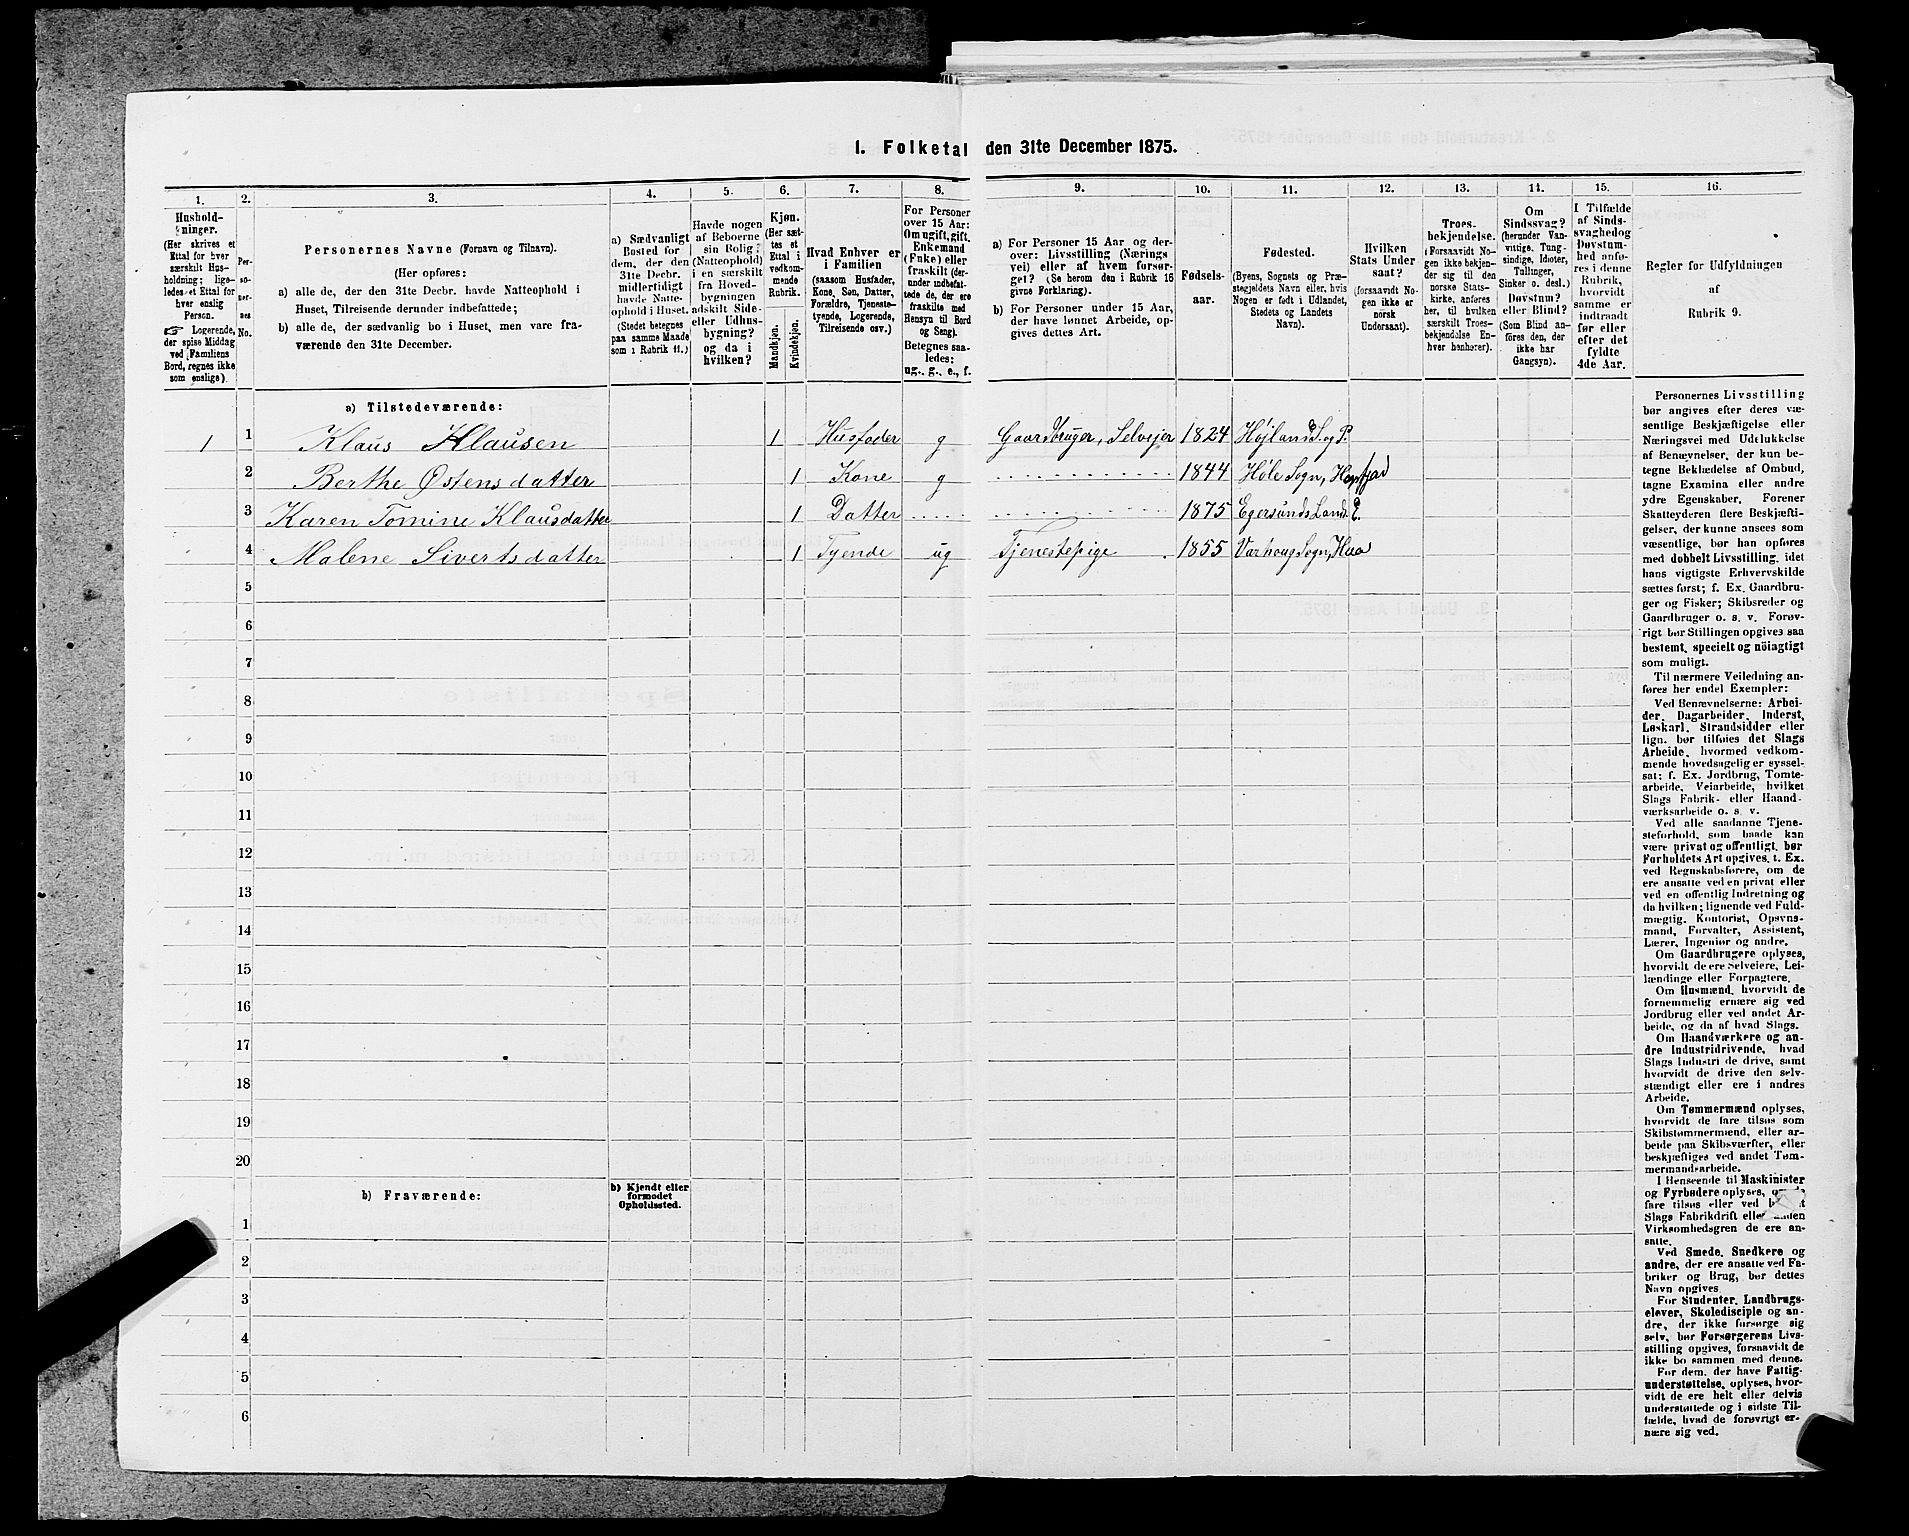 1. Folketal den 31te December 1875.
1.
2.
3.
4.
5.
6.
7.
8.
9.
10.
11.
12.
13.
14.
15.
16.
Hushold-
ninger.
(Her skrives et
Ettal for hver
særskilt Hus-
holdning; lige-
ledes et Ettal for
hver enslig
Person.
☞ Logerende,
der spise Middag
ved Familiens
Bord, regnes ikke
som enslige).
Per-
so-
ner-
nes
No.
Personernes Navne (Fornavn og Tilnavn).
(Her opføres:
a) alle de, der den 31te Decbr. havde Natteophold i
Huset, Tilreisende derunder indbefattede;
b) alle de, der sædvanlig bo i Huset, men vare fra-
værende den 31te December.
a) Sædvanligt
Bosted for
dem, der den
31te Decbr.
midlertidigt
havde Natte-
ophold i Huset.
(Stedet betegnes
paa samme Maade
som i Rubrik 11.)
Havde nogen
af Beboerne
sin Bolig
(Natteophold)
i en særskilt
fra Hoved-
bygningen
adskilt Side-
eller Udhus-
bygning?
og da i
hvilken?
Kjøn.
(Her sæt-
tes et
Ettal i
vedkom-
mende
Rubrik.
Mandkjøn.
Kvindekjøn.
Hvad Enhver er
i Familien
(saasom Husfader,
Kone, Søn, Datter,
Forældre, Tjeneste-
tyende, Logerende,
Tilreisende osv.)
For Personer
over 15 Aar:
Om ugift, gift,
Enkemand
(Enke) eller
fraskilt (der-
under indbefat-
tede de, der ere
fraskilte med
Hensyn til Bord
og Seng).
Betegnes saa-
ledes:
ug., g., e., f.
a) For Personer 15 Aar og der-
over: Livsstilling (Nærings
vei) eller af hvem forsør-
get? (Se herom den i Rubrik 16
givne Forklaring).
b) For Personer under 15 Aar,
der have lønnet Arbeide, op-
gives dettes Art.
Fødsels-
aar.
Fødested.
(Byens, Sognets og Præ-
stegjeldets Navn eller, hvis
Nogen er født i Udlandet,
Stedets og Landets
Navn).
Hvilken
Stats Under
saat?
(forsaavidt No-
gen ikke er
norsk
Undersaat).
Troes-
bekjendelse.
(Forsaavidt No-
gen ikke bekjen-
der sig til den
norske Stats-
kirke, anføres
her, til hvilken
særskilt Troes-
bekjendelse En-
hver henhører).
Om
Sindssvag?
(herunder Van-
vittige, Tung-
sindige, Idioter,
Tullinger,
Sinker o. desl.)
Døvstum?
eller Blind?
(Som Blind an-
føres den, der
ikke har
Gangsyn).
I Tilfælde
af Sinds-
svaghed og
Døvstum-
hed anfø-
res i denne
Rubrik,
hvorvidt
samme er
indtraadt
før eller
efter det
fyldte
4de Aar.
Regler for Udfyldningen
af
Rubrik 9.
a) Tilstedeværende:
1 1 Klaus Klausen 1 Husfader g Gaardbruger, Selveier 1824 Højland S. og P.
2 Berthe Østensdatter 1 Kone g 1844 Høle Sogn,
3 Karen Tomine Klausdatter 1 Datter 1875 Egersunds Land
4 Malene Sivertsdatter 1 Tyende ug Tjenestepige 1855 Varhoug Sogn, Haa
5
6
7
8
9
10
11
12
13
14
15
16
17
18
19
20
b) Fraværende:
b) Kjendt eller
formodet
Opholdssted.
1
2
3
4
5
6
Personernes Livsstilling
bør angives efter deres væ-
sentlige Beskjæftigelse eller
Næringsvei med Udelukkelse
af Benævnelser, der kun be-
tegne Beklædelse af Ombud,
tagne Examina eller andre
ydre Egenskaber. Forener
Skatteyderen flere Beskjæfti-
gelser, der kunne ansees som
væsentlige, bør han opføres
med dobbelt Livsstilling, idet
hans vigtigste Erhvervskilde
sættes først; f. Ex. Gaardbru-
ger og Fisker; Skibsreder og
Gaardbruger o. s. v. Forøv-
rigt bør Stillingen opgives saa
bestemt, specielt og nöiagtigt
som muligt.
Til nærmere Veiledning an-
føres her endel Exempler:
Ved Benævnelserne: Arbei-
der, Dagarbeider, Inderst,
Løskarl, Strandsidder eller
lign. bør tilføies det Slags
Arbeide, hvormed vedkom-
mende hovedsagelig er syssel-
sat; f. Ex. Jordbrug, Tomte-
arbeide, Veiarbeide, hvilket
Slags Fabrik- eller Haand-
værksarbeide o. s. v.
Ved alle saadanne Tjene-
steforhold, som baade kan
være privat og offentligt, bør
Forholdets Art opgives, t. Ex.
ved Regnskabsførere, om de
ere ansatte ved en privat eller
ved en offentlig Indretning og
da hvilken; lignende ved Fuld-
mægtig, Kontorist, Opsyns-
mand, Forvalter, Assistent,
Lærer, Ingeniør og andre.
Om Gaardbrugere oplyses,
hvorvidt de ere Selveiere, Lei-
lændinge eller Forpagtere.
Om Husmænd, hvorvidt de
fornemmelig ernære sig ved
Jordbrug eller ved andet Ar-
beide, og da af hvad Slags.
Om Haandværkere og an-
dre Industridrivende, hvad
Slags Industri de drive, samt
hvorvidt de drive den selv-
stændigt eller ere i andres
Arbeide.
Om Tømmermænd oplyses,
hvorvidt de fare tilsøs som
Skibstømmermænd, eller ar-
beide paa Skibsværfter, eller
beskjæftiges ved andet Tøm-
mermandsarbeide.
I Henseende til Maskinister
og Fyrbødere oplyses, de
fare tilsøs eller ved
Slags Fabrikdrift eller anden
Virksomhedsgren de ere an-
satte.
Ved Smede, Snedkere og
andre, der ere ansatte ved Fa-
briker og Brug, bør dettes
Navn opgives
For Studenter, Landbrugs-
elever, Skoledisciple og an-
dre, der ikke forsørge sig
selv, bør Forsørgerens Livs-
stilling opgives, forsaavidt de
ikke bo sammen med denne.
For dem, der have Fattig-
understøttelse, oplyses, hvor-
vidt de ere helt eller delvis
understøttede og i sidste Til-
fælde, hvad de forøvrigt er-
nære sig ved.